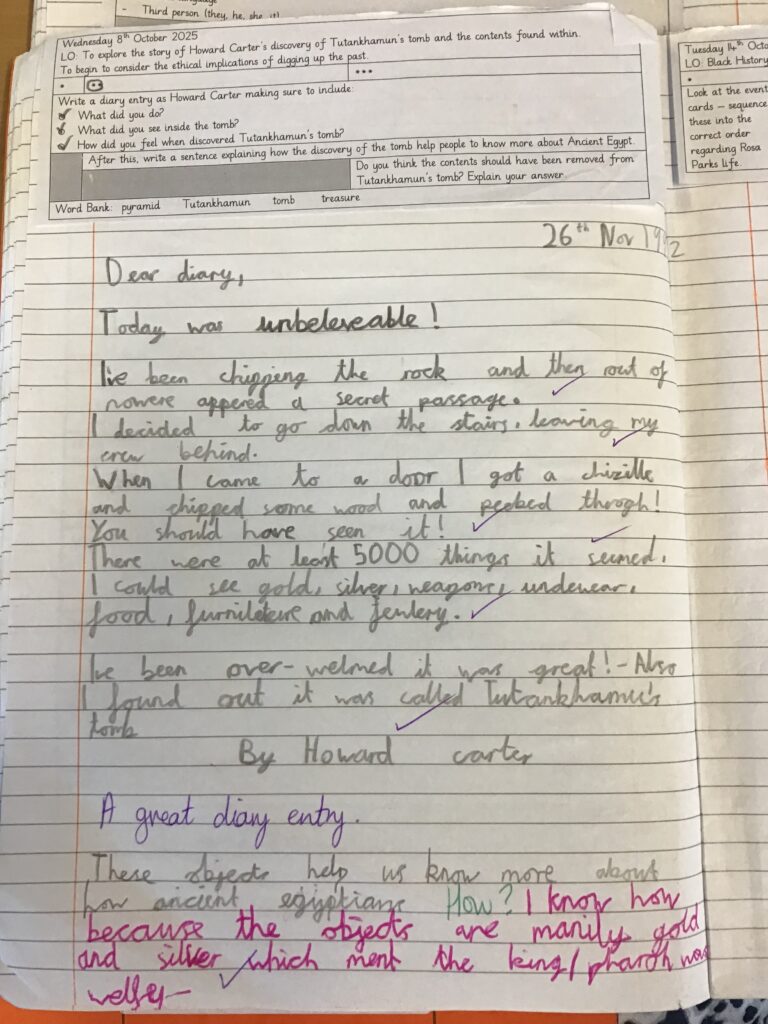 language
- Third person (they, he, she, it)
Wednesday 8th October 2025
LO: To explore the story of Howard Carter's discovery of Tutankhamun's tomb and the contents found within.
To begin to consider the ethical implications of digging up the past.
Write a diary entry as Howard Carter making sure to include:
What did you do?
What did you see inside the tomb?
How did you feel when discovered Tutankhamun's tomb?
After this, write a sentence explaining how the discovery of the tomb help people to know more about Ancient Egypt.
Do you think the contents should have been removed from
Tutankhamun's tomb? Explain your answer.
Word Bank: pyramid Tutankhamun tomb treasure
Tuesday 14th Octo
LO: Black History
Look at the event
cards – sequence
these into the
correct order
regarding Rosa
Parks life.
26th Nov 1922
Dear diary,
Today was unbeleveable!
I've been chipping the rock and then rout of
nowere appered a secret passage.
I decided to go down the stairs, leaving my
crew behind.
When I came to a door I got a chizille
and chipped some wood and peebed throgh!
You should have seen it!
There were at least 5000 things it seemed.
I could see gold, silver, weapons, undewear,
food, furniteure and jewlery.
I've been over-welmed it was great! - Also
I found out it was called Tutankhamu's
tomb
By Howard carter
A great diary entry.
These objects help us know more about
how ancient egyptians How? I know how
because the objects are manily gold
and silver which ment the king/pharoh was